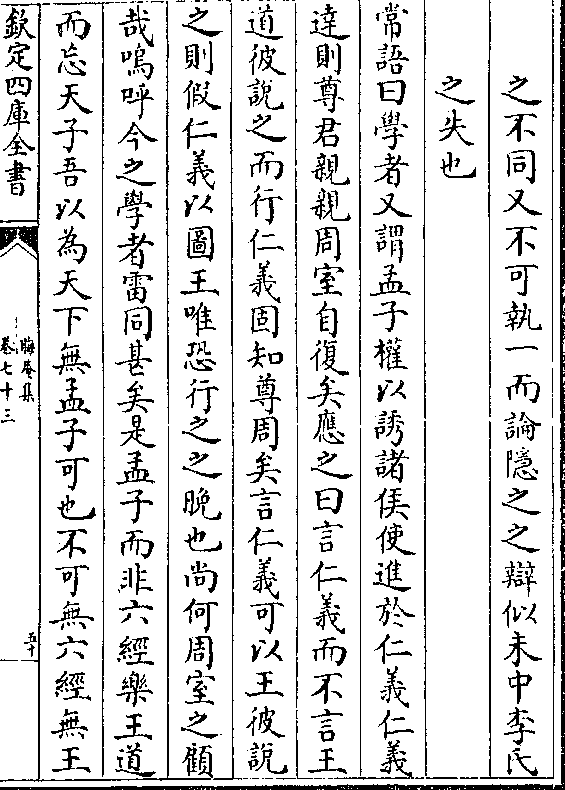 之不同又不可執一而論隱之之辯似未中李氏
之失也
常語曰學者又謂孟子權以誘諸侯使進於仁義仁義
達則尊君親親周室自復矣應之曰言仁義而不言王
道彼說之而行仁義固知尊周矣言仁義可以王彼說
之則假仁義以圖王唯恐行之之晚也尚何周室之顧
哉嗚呼今之學者雷同甚矣是孟子而非六經樂王道
而忘天子吾以為天下無孟子可也不可無六經無王
欽定四庫全書
晦庵集
卷七十三
五十